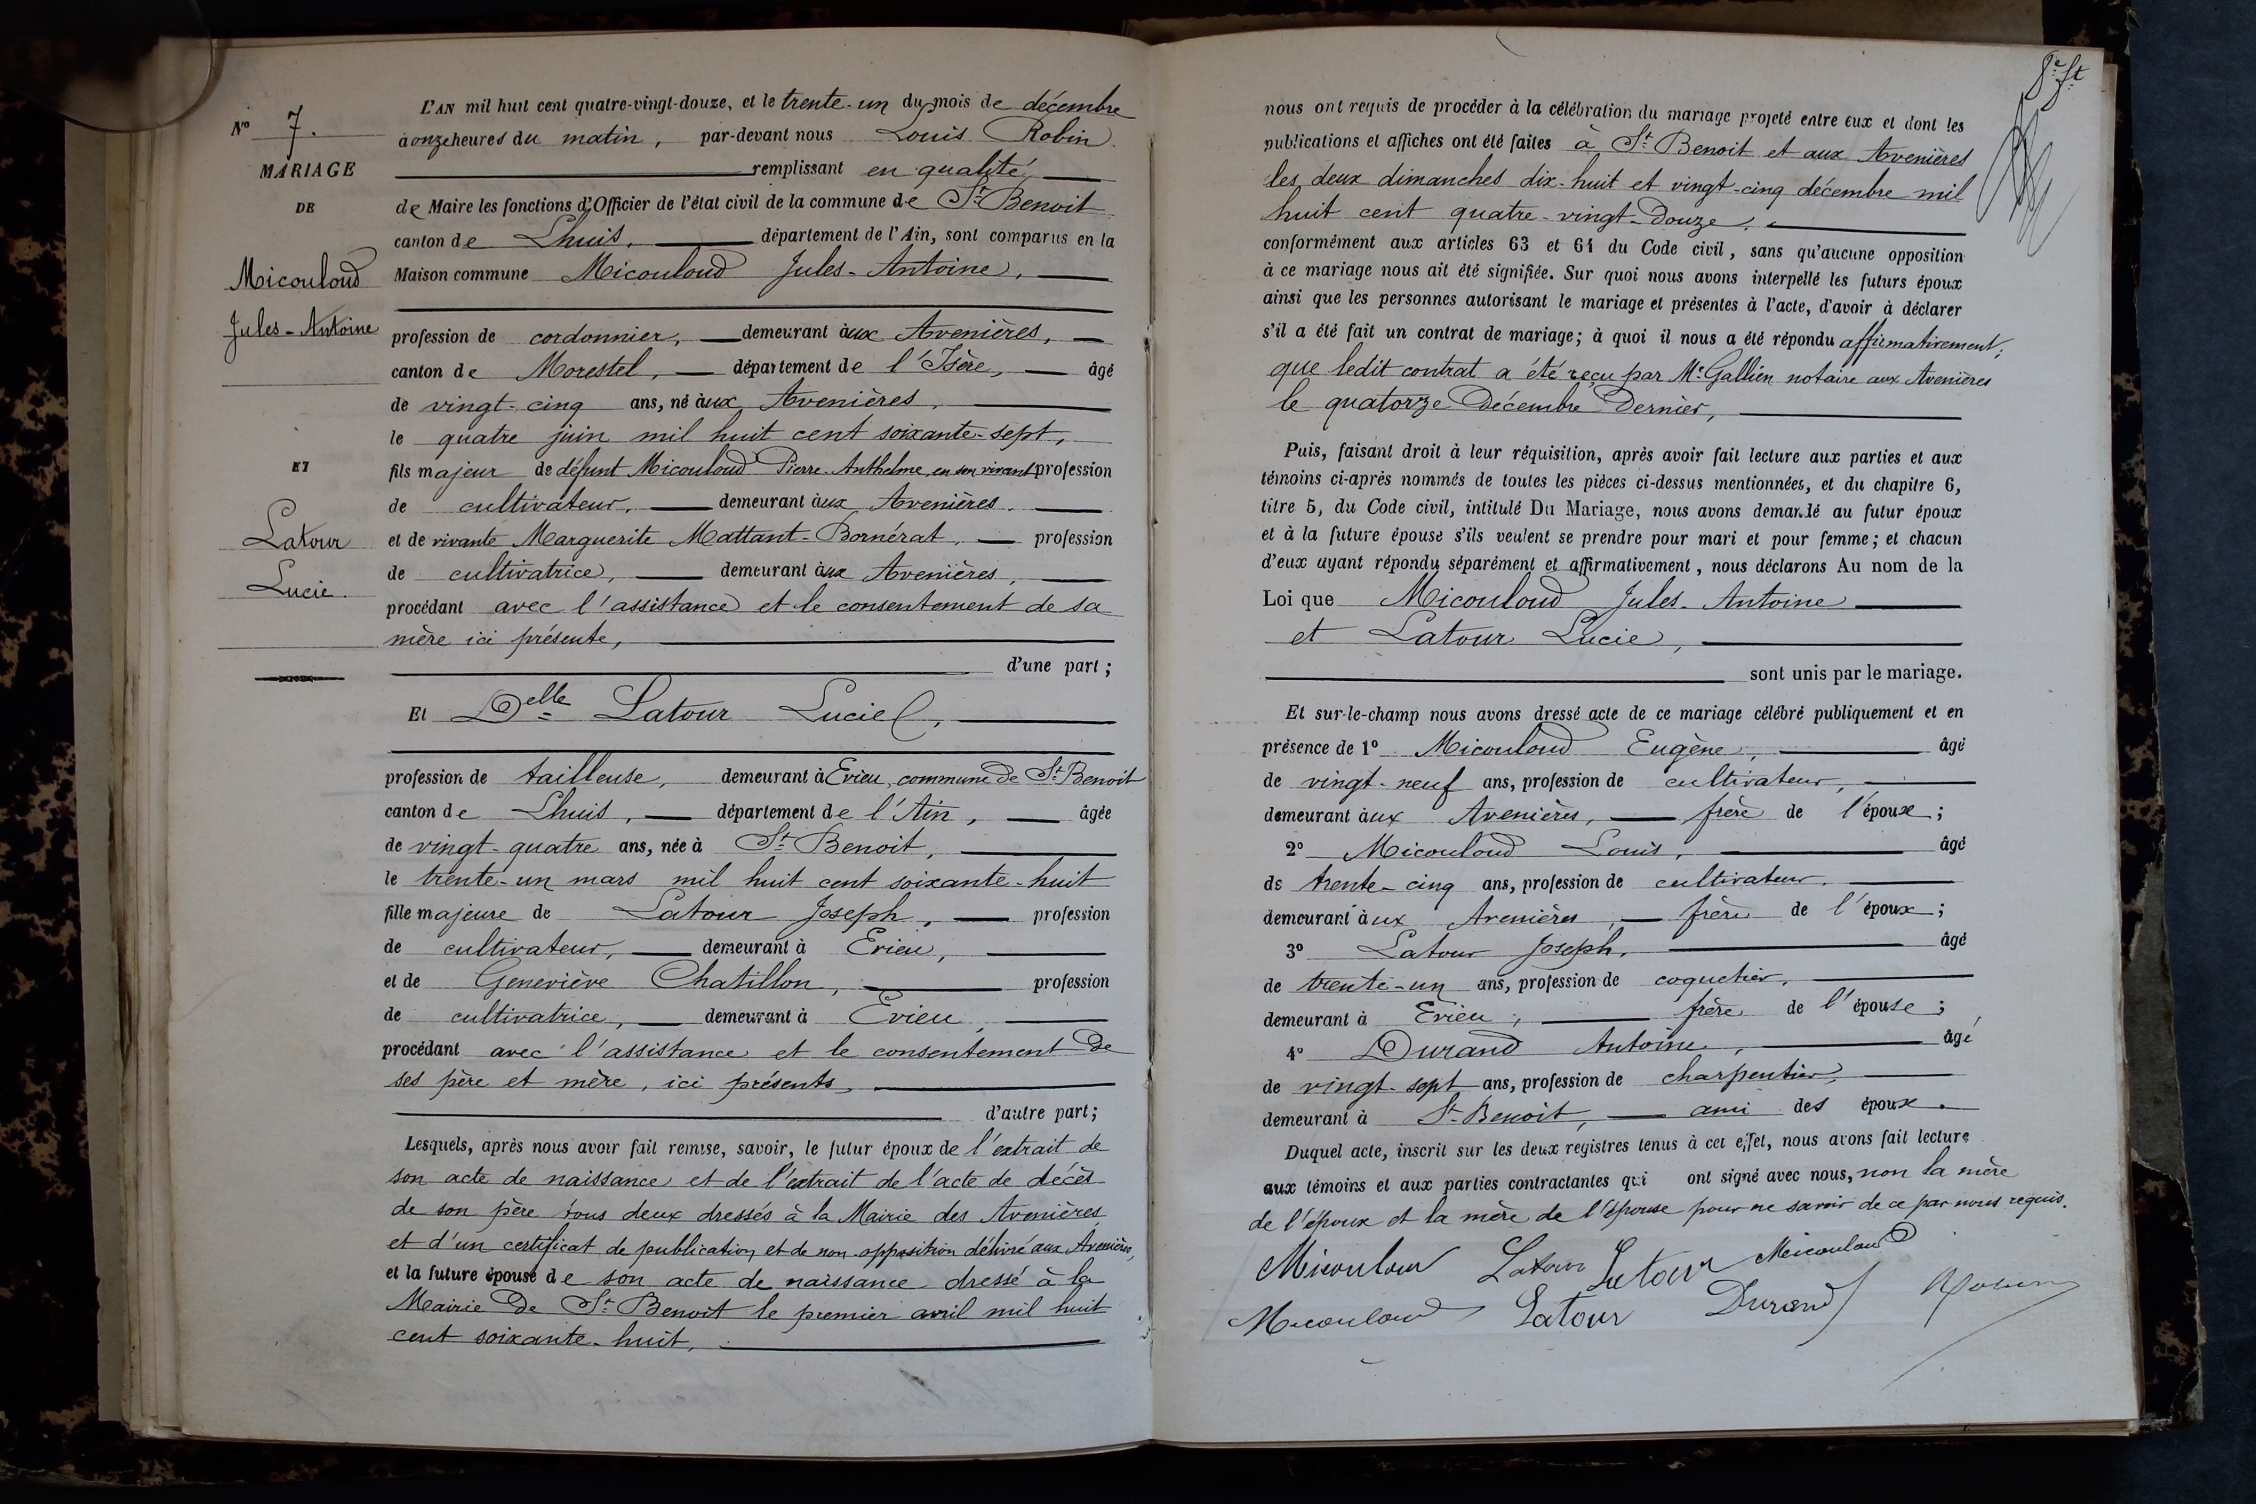 N° 7.
MARIAGE
DE
Micouloud
Jules-Antoine
ET
Latour
Lucie.
L'AN mil huit cent quatre-vingt-douze, et le trente-un du mois de décembre
à onze heures du matin, par-devant nous Louis Robin
remplissant en qualité
de Maire les fonctions d'Officier de l'état civil de la commune de St Benoit
canton de Lhuis, département de l'Ain, sont comparus en la
Maison commune Micouloud Jules-Antoine,
profession de cordonnier, demeurant aux Avenières,
canton de Morestel, département de l'Isère, âgé
de vingt-cinq ans, né aux Avenières,
le quatre juin mil huit cent soixante-sept,
fils majeur de défunt Micouloud Pierre-Anthelme, en son vivant profession
de cultivateur, demeurant aux Avenières.
et de vivante Marguerite Mattant-Bornérat, profession
de cultivatrice, demeurant aux Avenières,
procédant avec l'assistance et le consentement de sa
mère ici présente,
d'une part ;
Et Delle Latour Lucie,
profession de tailleuse, demeurant à Evieu, commune de St Benoit
canton de Lhuis, département de l'Ain, âgée
de vingt-quatre ans, née à St Benoit,
le trente-un mars mil huit cent soixante-huit
fille majeure de Latour Joseph, profession
de cultivateur, demeurant à Evieu,
et de Geneviève Chatillon, profession
de cultivatrice, demeurant à Evieu,
procédant avec l'assistance et le consentement de
ses père et mère, ici présents,
d'autre part ;
Lesquels, après nous avoir fait remise, savoir, le futur époux de l'extrait de
son acte de naissance et de l'extrait de l'acte de décès
de son père tous deux dressés à la Mairie des Avenières
et d'un certificat de publication et de non-opposition délivré aux Avenières,
et la future épouse de son acte de naissance dressé à la
Mairie de St Benoit le premier avril mil huit
cent soixante-huit,
nous ont requis de procéder à la célébration du mariage projeté entre eux et dont les
publications et affiches ont été faites à St Benoit et aux Avenières
les deux dimanches dix-huit et vingt-cinq décembre mil
huit cent quatre-vingt-douze,
conformément aux articles 63 et 64 du Code civil, sans qu'aucune opposition
à ce mariage nous ait été signifiée. Sur quoi nous avons interpellé les futurs époux
ainsi que les personnes autorisant le mariage et présentes à l'acte, d'avoir à déclarer
s'il a été fait un contrat de mariage ; à quoi il nous a été répondu affirmativement,
que ledit contrat a été reçu par Me Gallien notaire aux Avenières
le quatorze Décembre Dernier,
Puis, faisant droit à leur réquisition, après avoir fait lecture aux parties et aux
témoins ci-après nommés de toutes les pièces ci-dessus mentionnées, et du chapitre 6,
titre 5, du Code civil, intitulé Du Mariage, nous avons demandé au futur époux
et à la future épouse s'ils veulent se prendre pour mari et pour femme ; et chacun
d'eux ayant répondu séparément et affirmativement, nous déclarons Au nom de la
Loi que Micouloud Jules-Antoine
et Latour Lucie,
sont unis par le mariage.
Et sur-le-champ nous avons dressé acte de ce mariage célébré publiquement et en
présence de 1° Micouloud Eugène, âgé
de vingt-neuf ans, profession de cultivateur,
demeurant aux Avenières, frère de l'époux ;
2° Micouloud Louis, âgé
de trente-cinq ans, profession de cultivateur.
demeurant aux Avenières, frère de l'époux ;
3° Latour Joseph, âgé
de trente-un ans, profession de coquetier,
demeurant à Evieu, frère de l'épouse ;
4° Durand Antoine, âgé
de vingt-sept ans, profession de charpentier,
demeurant à St Benoit, ami des époux.
Duquel acte, inscrit sur les deux registres tenus à cet effet, nous avons fait lecture
aux témoins et aux parties contractantes qui ont signé avec nous, non la mère
de l'époux et la mère de l'épouse pour ne savoir de ce par nous requis.
Micouloud Latour Latour Micouloud
Micouloud Latour Durand Robin